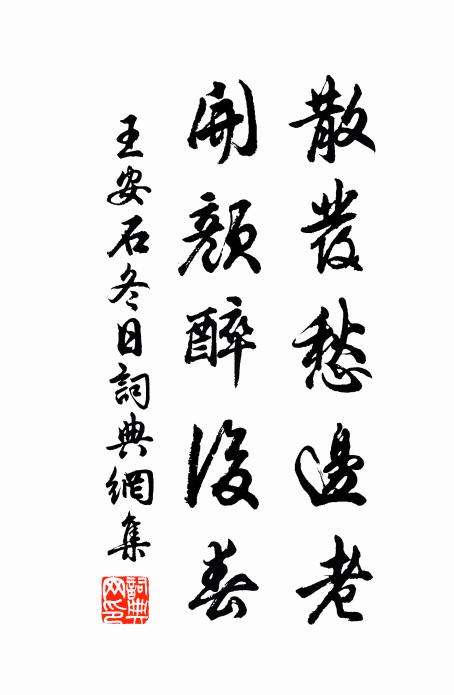 散發愁邊老
開顏醉後春
王安石冬日詞典網集
詞典網印